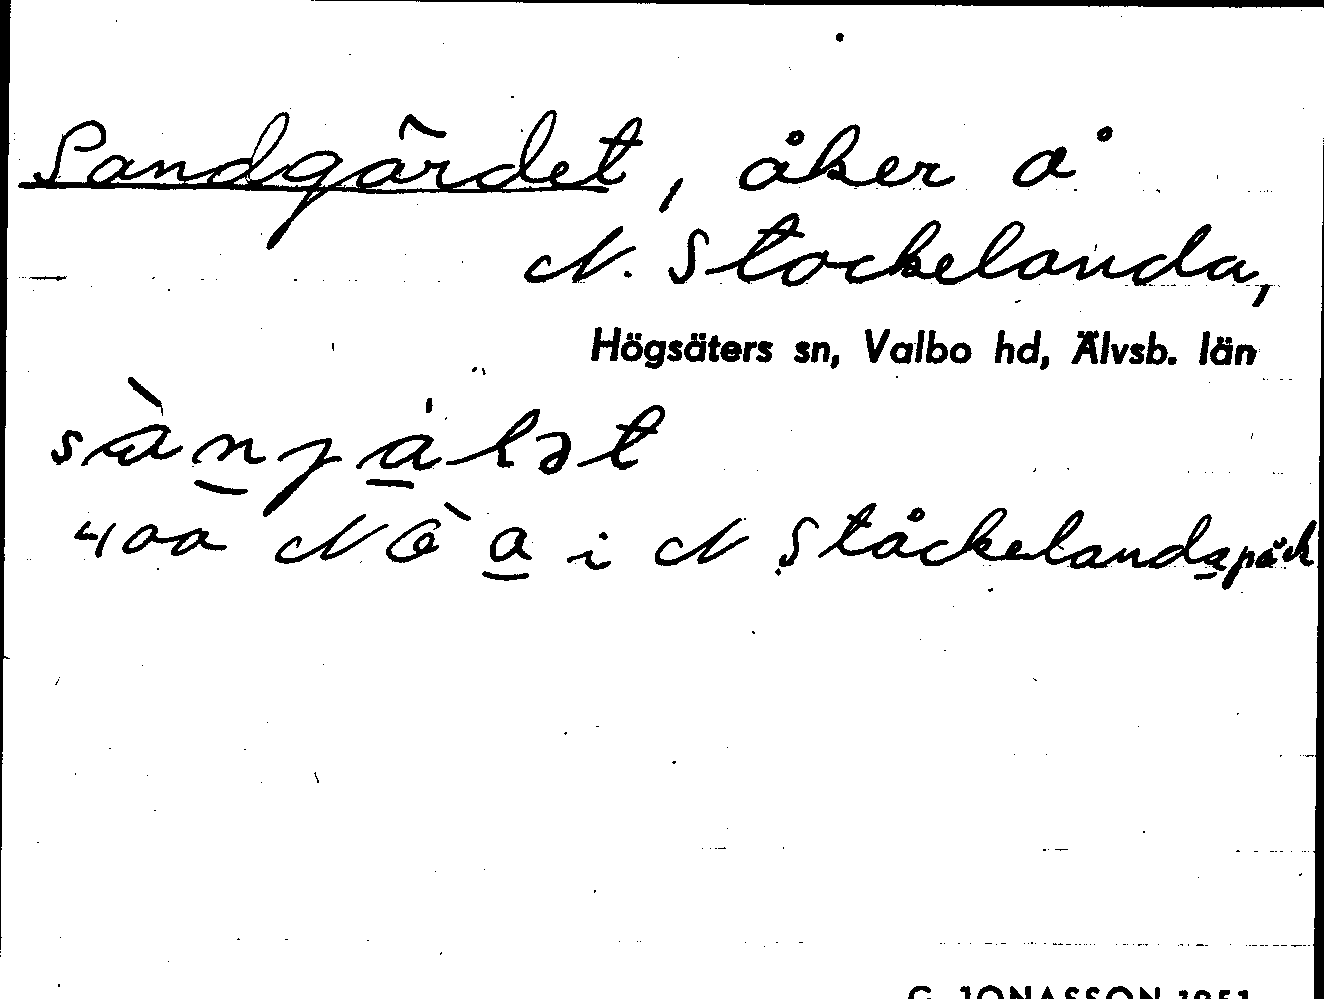 Sandgärdet, åker å
N. Stockelanda,
Högsäters sn, Valbo hd, Älvsb. län
400 NÖ a i N Ståckelanda på ek
G. JONASSON 1951